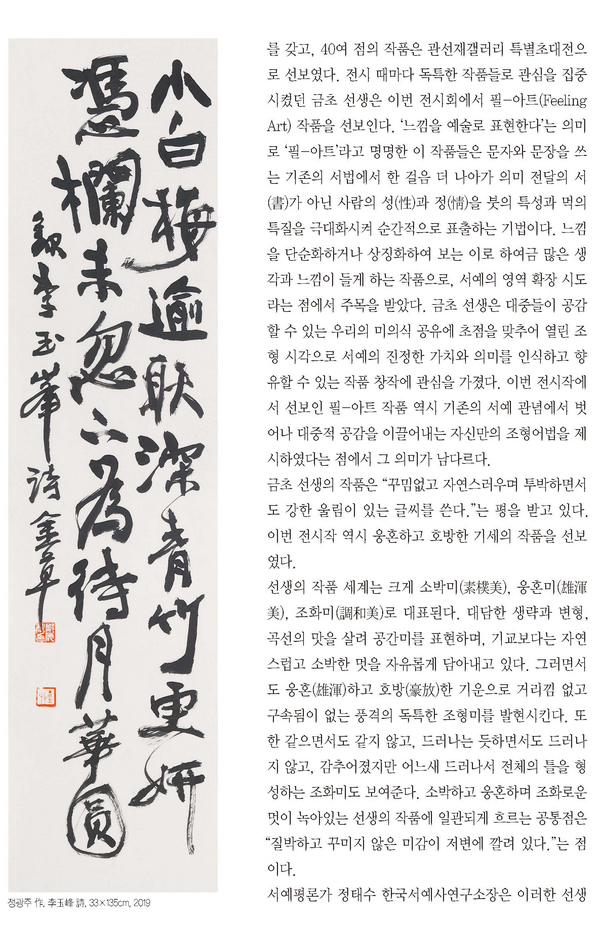 小白梅逾耿深青竹更妍
憑欄未忍下為待月華圓
錄李玉峯詩 金草
정광주 作, 李玉峰 詩, 33×135cm, 2019
를 갖고, 40여 점의 작품은 관선재갤러리 특별초대전으
로 선보였다. 전시 때마다 독특한 작품들로 관심을 집중
시켰던 금초 선생은 이번 전시회에서 필-아트(Feeling
Art) 작품을 선보인다. ‘느낌을 예술로 표현한다’는 의미
로 ‘필-아트’라고 명명한 이 작품들은 문자와 문장을 쓰
는 기존의 서법에서 한 걸음 더 나아가 의미 전달의 서
(書)가 아닌 사람의 성(性)과 정(情)을 붓의 특성과 먹의
특질을 극대화시켜 순간적으로 표출하는 기법이다. 느낌
을 단순화하거나 상징화하여 보는 이로 하여금 많은 생
각과 느낌이 들게 하는 작품으로, 서예의 영역 확장 시도
라는 점에서 주목을 받았다. 금초 선생은 대중들이 공감
할 수 있는 우리의 미의식 공유에 초점을 맞추어 열린 조
형 시각으로 서예의 진정한 가치와 의미를 인식하고 향
유할 수 있는 작품 창작에 관심을 가졌다. 이번 전시작에
서 선보인 필-아트 작품 역시 기존의 서예 관념에서 벗
어나 대중적 공감을 이끌어내는 자신만의 조형어법을 제
시하였다는 점에서 그 의미가 남다르다.
금초 선생의 작품은 “꾸밈없고 자연스러우며 투박하면서
도 강한 울림이 있는 글씨를 쓴다.”는 평을 받고 있다.
이번 전시작 역시 웅혼하고 호방한 기세의 작품을 선보
였다.
선생의 작품 세계는 크게 소박미(素樸美), 웅혼미(雄渾
美), 조화미(調和美)로 대표된다. 대담한 생략과 변형,
곡선의 맛을 살려 공간미를 표현하며, 기교보다는 자연
스럽고 소박한 멋을 자유롭게 담아내고 있다. 그러면서
도 웅혼(雄渾)하고 호방(豪放)한 기운으로 거리낌 없고
구속됨이 없는 풍격의 독특한 조형미를 발현시킨다. 또
한 같으면서도 같지 않고, 드러나는 듯하면서도 드러나
지 않고, 감추어졌지만 어느새 드러나서 전체의 틀을 형
성하는 조화미도 보여준다. 소박하고 웅혼하며 조화로운
멋이 녹아있는 선생의 작품에 일관되게 흐르는 공통점은
“질박하고 꾸미지 않은 미감이 저변에 깔려 있다.”는 점
이다.
서예평론가 정태수 한국서예사연구소장은 이러한 선생